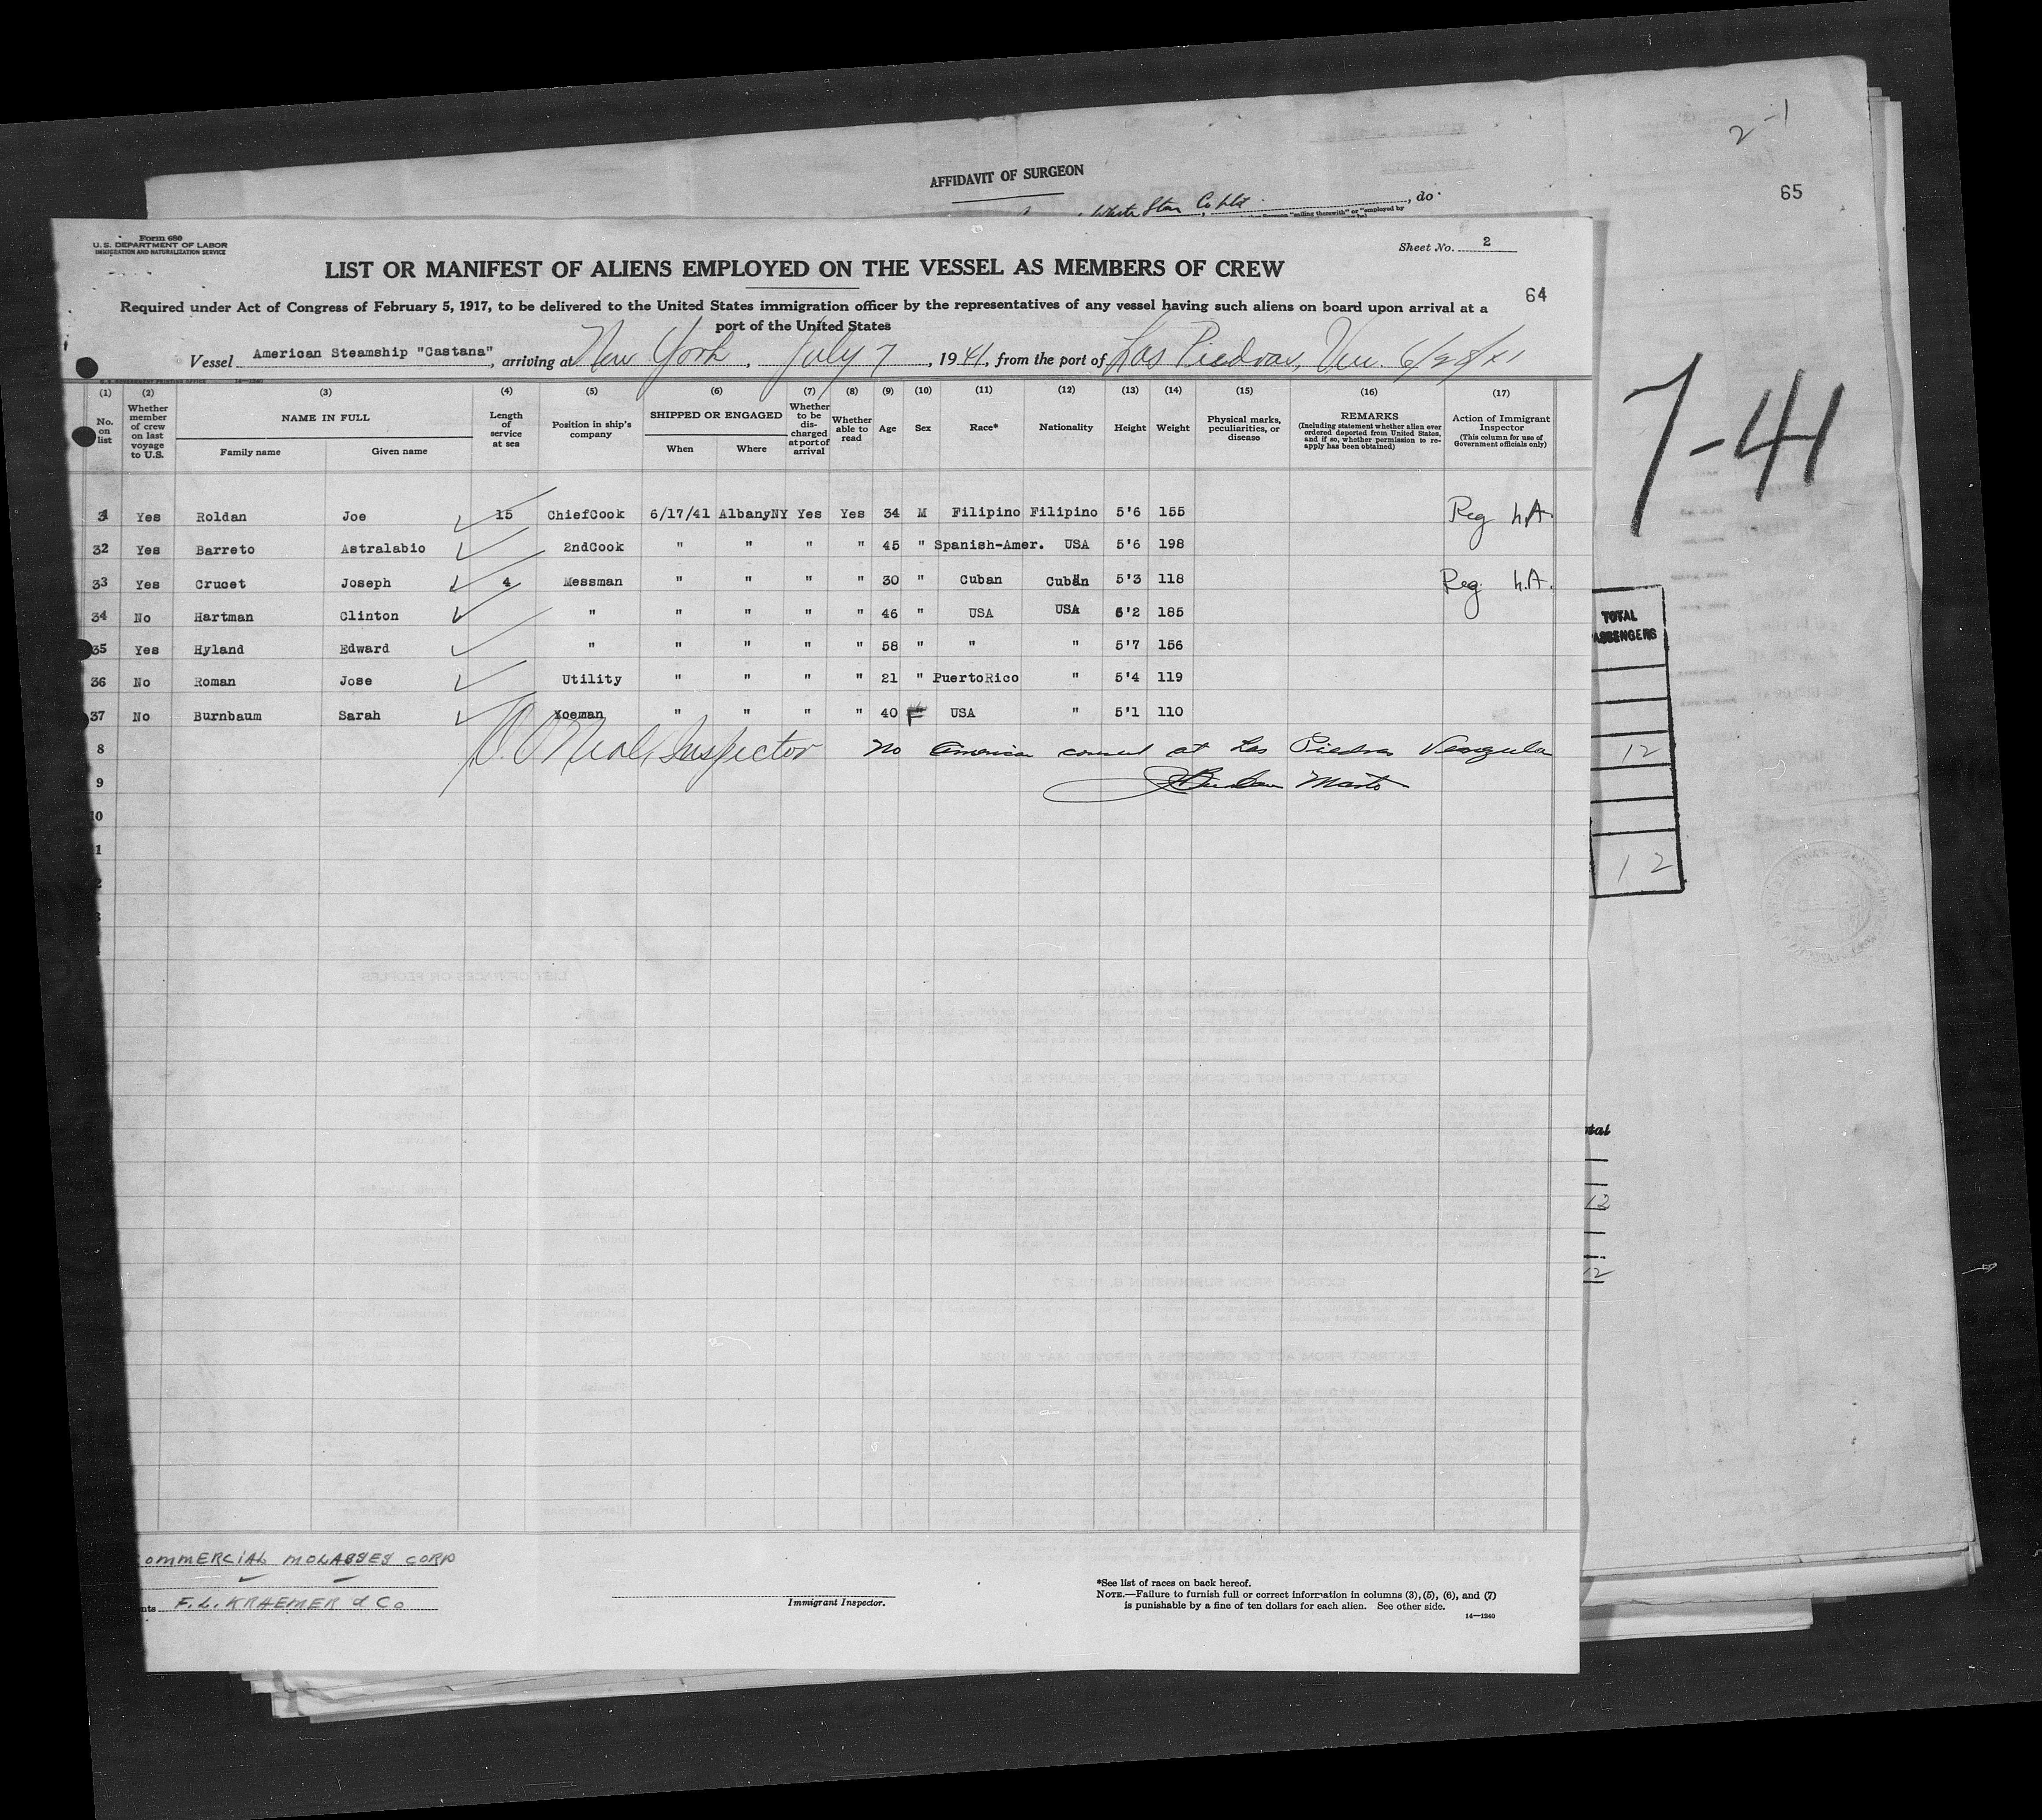 2-1
65
AFFIDAVIT OF SURGEON
White Star Co Ltd , do
"sailing therewith" or "employed by
Form 680
U. S. DEPARTMENT OF LABOR
IMMIGRATION AND NATURALIZATION SERVICE
Sheet No. 2
LIST OR MANIFEST OF ALIENS EMPLOYED ON THE VESSEL AS MEMBERS OF CREW
64
Required under Act of Congress of February 5, 1917, to be delivered to the United States immigration officer by the representatives of any vessel having such aliens on board upon arrival at a
port of the United States
Vessel American Steamship "Castana", arriving at New York, July 7, 1941, from the port of Las Piedras, Ven. 6/28/41
U. S. GOVERNMENT PRINTING OFFICE 14—1240
(1) (2) (3) (4) (5) (6) (7) (8) (9) (10) (11) (12) (13) (14) (15) (16) (17)
No. on list Whether member of crew on last voyage to U.S. NAME IN FULL Family name Given name Length of service at sea Position in ship's company SHIPPED OR ENGAGED When Where Whether to be discharged at port of arrival Whether able to read Age Sex Race* Nationality Height Weight Physical marks, peculiarities, or disease REMARKS (Including statement whether alien ever ordered deported from United States, and if so, whether permission to reapply has been obtained) Action of Immigrant Inspector (This column for use of Government officials only)
31 Yes Roldan Joe 15 ChiefCook 6/17/41 AlbanyNY Yes Yes 34 M Filipino Filipino 5'6 155 Reg h.A.
32 Yes Barreto Astralabio 2ndCook " " " " 45 " Spanish-Amer. USA 5'6 198
33 Yes Crucet Joseph 4 Messman " " " " 30 " Cuban Cuban 5'3 118 Reg h.A.
34 No Hartman Clinton " " " " " 46 " USA USA 6'2 185
35 Yes Hyland Edward " " " " " 58 " " " 5'7 156
36 No Roman Jose Utility " " " " 21 " PuertoRico " 5'4 119
37 No Burnbaum Sarah Yoeman " " " " 40 F USA " 5'1 110
8 O'Neal, Inspector No America consul at Las Piedras Venezula
9
10
1
2
3
7-41
TOTAL
PASSENGERS
12
12
tal
12
12
OMMERCIAL MOLASSES CORP
nts F. L. KRAEMER & CO
Immigrant Inspector.
*See list of races on back hereof.
NOTE.—Failure to furnish full or correct information in columns (3), (5), (6), and (7)
is punishable by a fine of ten dollars for each alien. See other side.
14—1240